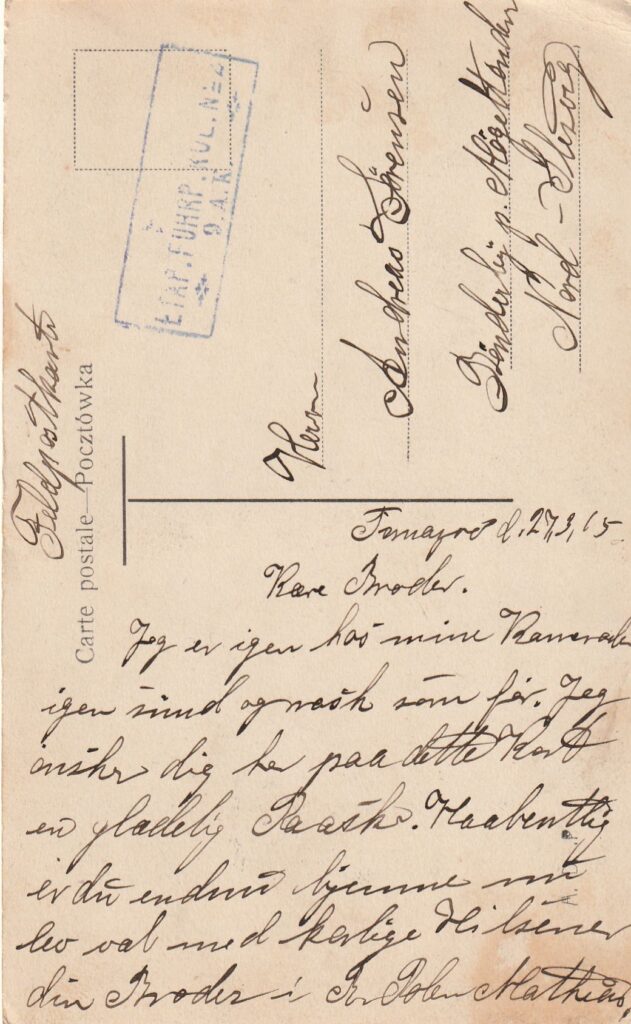 Feldpostkarte
Carte postale—Pocztówka
ETAP. FUHRP. KOL. No 2
9. A. K.
Herrn
Andreas Sörensen
Nord-Slesvig
d. 27,3,15.
Kære Broder.
Jeg er igen hos mine Kamerader
igen sund og rask som før. Jeg
ønsker dig her paa dette Kort
en glædelig Paaske. Haabentlig
er du endnu hjemme nu
lev vel med kærlige Hilsener
din Broder i Polen Mathias.